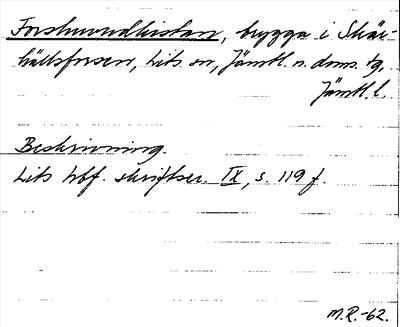 Forshuvudkistan, brygga i Skär-
hällsforsen, Lits sn, Jämtl. n. doms. tg,
Jämtl. l.
Beskrivning.
Lits hbf. skriftser. IX, s. 119 f.
M.R.-62.